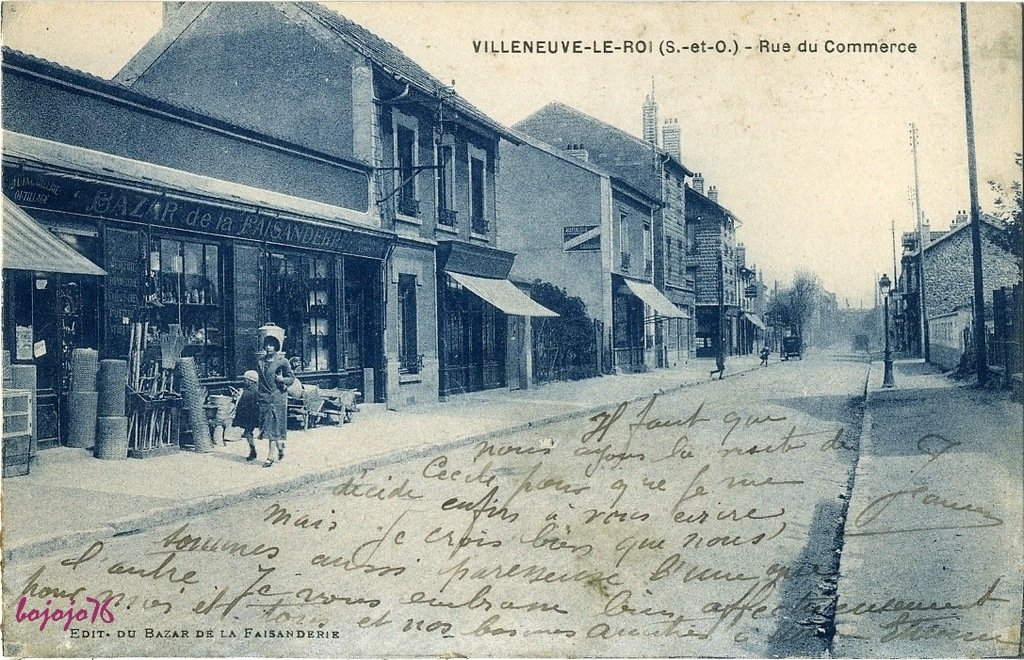 VILLENEUVE-LE-ROI (S.-et-O.) - Rue du Commerce
QUINCAILLERIE
OUTILLAGE
BAZAR de la FAISANDERIE
Il faut que
nous ayons la mort de
Cécile pour que je me
décide enfin à vous écrire
mais je crois bien que nous
sommes aussi paresseuse l'une que
l'autre Je vous embrasse bien affectueusement
pour moi et tous et nos bonnes amitiés à
bojojo76
EDIT. DU BAZAR DE LA FAISANDERIE